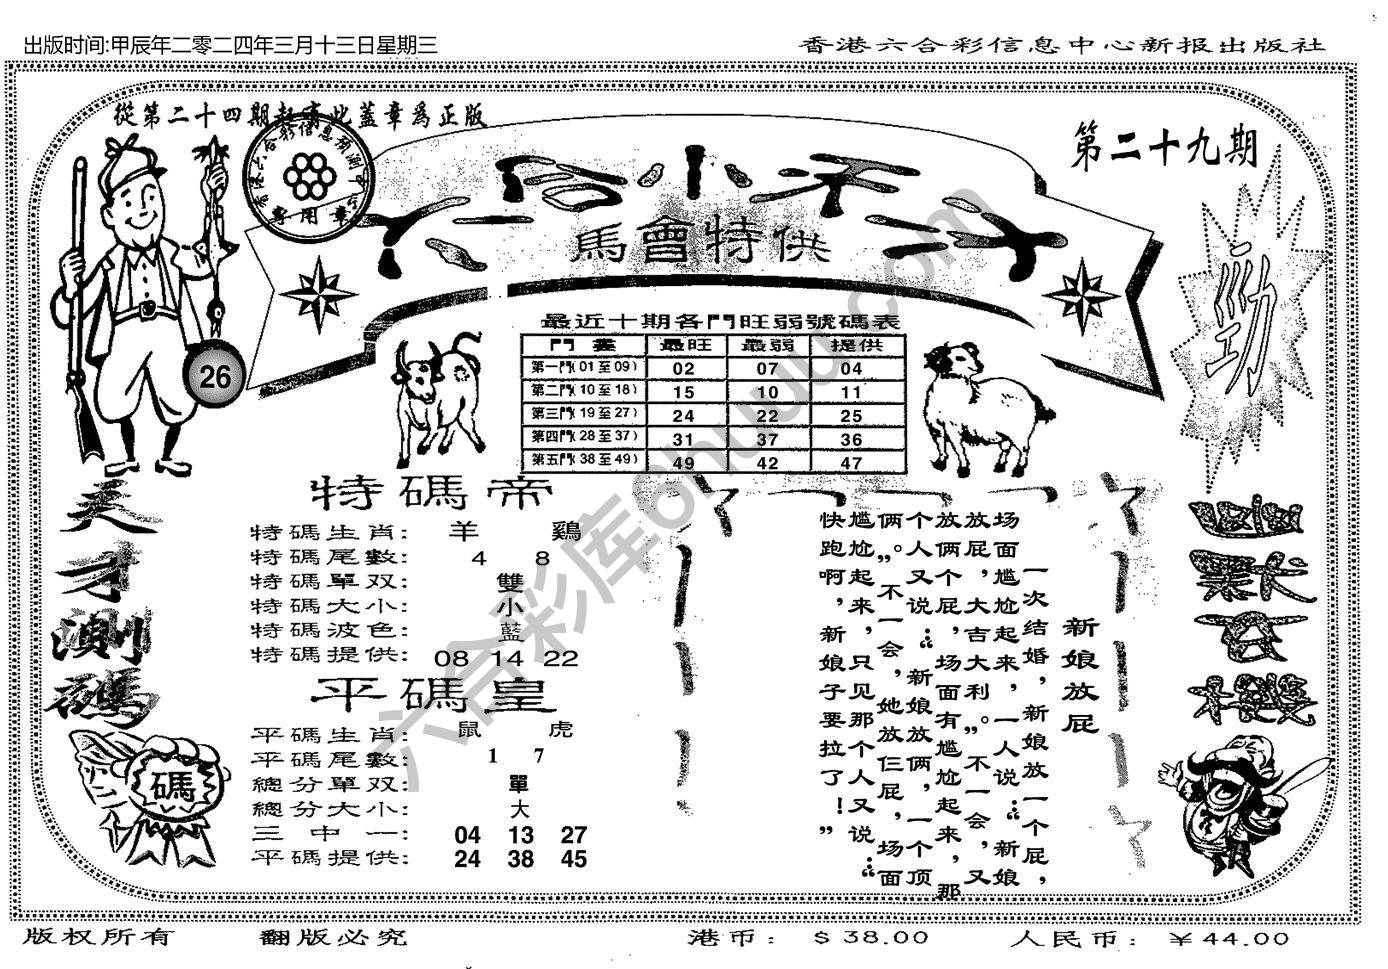 出版时间:甲辰年二零二四年三月十三日星期三
香港六合彩信息中心新报出版社
從第二十四期起寄此蓋章爲正版
第二十九期
馬會特供
勁
26
最近十期各門旺弱號碼表
門 最旺 最弱 提供
第一門(01至09) 02 07 04
第二門(10至18) 15 10 11
第三門(19至27) 24 22 25
第四門(28至37) 31 37 36
第五門(38至49) 49 42 47
天才測碼
特碼帝
特碼生肖: 羊 鷄
特碼尾數: 4 8
特碼單双: 雙
特碼大小: 小
特碼波色: 藍
特碼提供: 08 14 22
平碼皇
平碼生肖: 鼠 虎
平碼尾數: 1 7
總分單双: 單
總分大小: 大
三中一: 04 13 27
平碼提供: 24 38 45
碼
新娘放屁
一次结婚，新娘放一个屁，
场面尴尬起来，一人说：“新娘
放屁，大吉大利。”不一会，又
放俩个屁，场面有尴尬起来，那
个人又说：“新娘放俩，一个顶
俩”。不一会，她放仨屁，场面
尴尬起来，只见那个人又说：“
快跑啊，新娘子要拉了！”
六合彩库6huuu.com
版权所有
翻版必究
港币： $38.00
人民币： ￥44.00